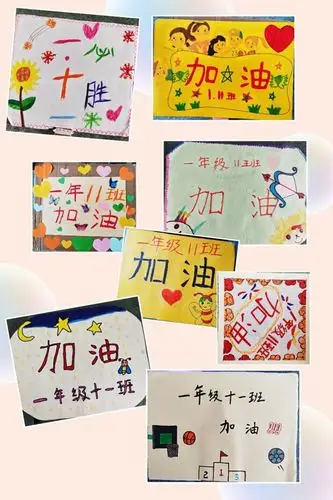 一.十一
必胜
加油
1.11班
一年11班
加油
一年级11班
加油
一年级11班
加油
加油
一年级11班
加油
一年级十一班
一年级十一班
加油!!!
2 1 3